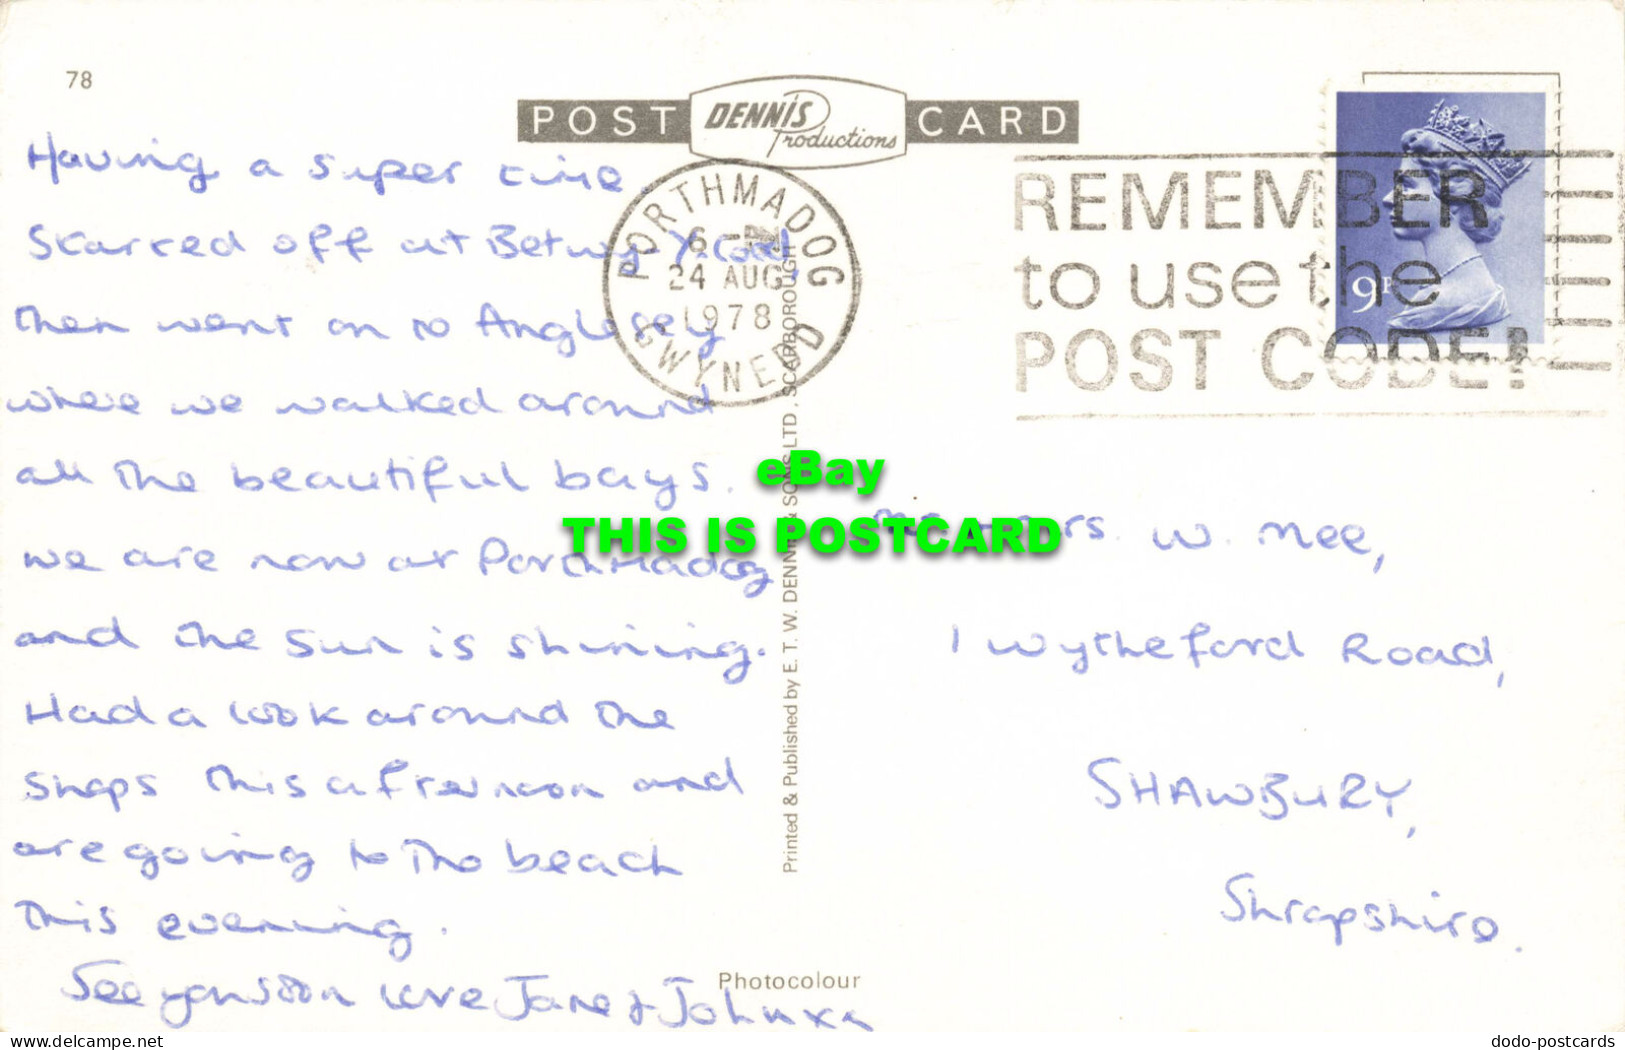 78
POST DENNIS Productions CARD
Having a super time.
Started off at Betwy-Y-Coed,
then went on to Anglesey
where we walked around
all the beautiful bays.
we are now at Porthmadog
and the sun is shining.
Had a look around the
shops this afternoon and
are going to the beach
this evening.
See you soon love Jane & John xx
PORTHMADOG
6 - PM
24 AUG
1978
GWYNEDD
REMEMBER
to use the
POST CODE!
9P
Printed & Published by E. T. W. DENNIS & SONS LTD., SCARBOROUGH
Photocolour
Mr & Mrs. W. Mee,
1 Wytheford Road,
SHAWBURY,
Shropshire.
eBay
THIS IS POSTCARD
delcampe.net
dodo-postcards